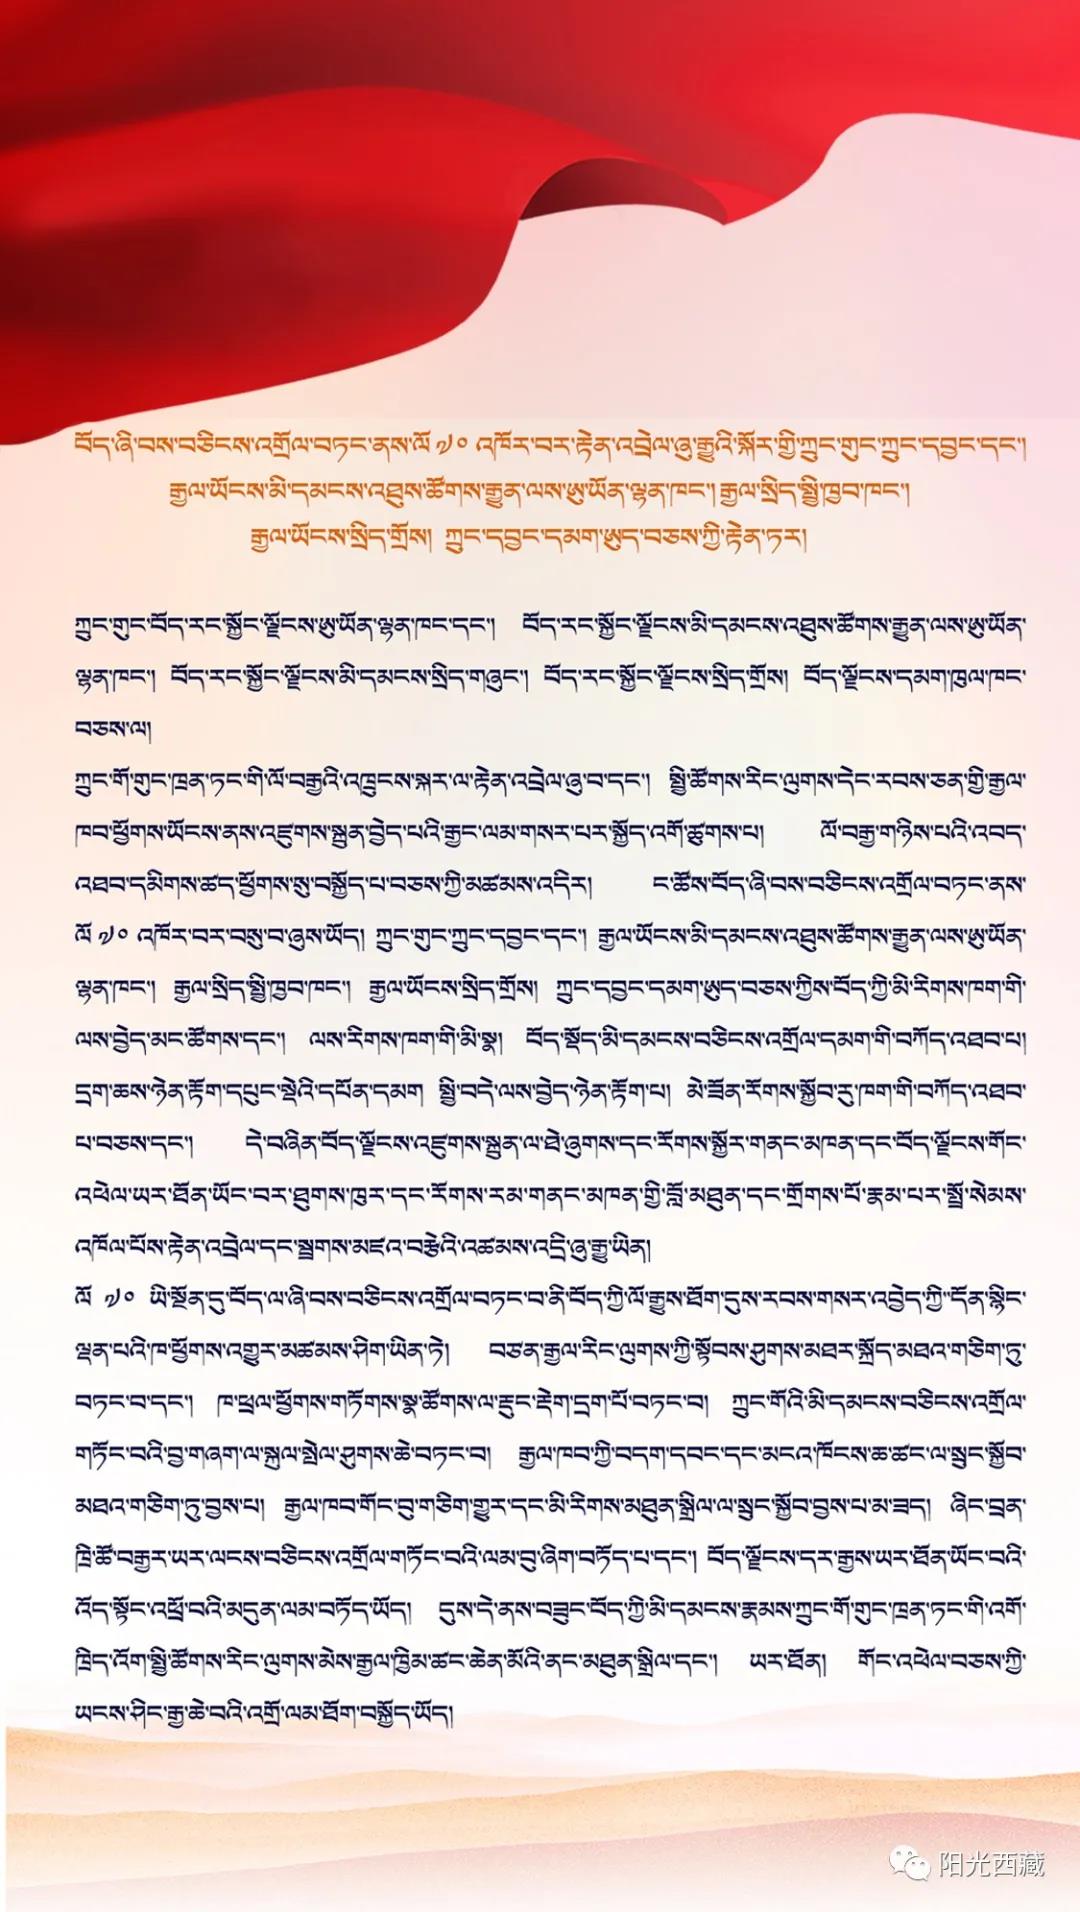 བོད་ཞི་བས་བཅིངས་འགྲོལ་བཏང་ནས་ལོ་༧༠ འཁོར་བར་རྟེན་འབྲེལ་ཞུ་རྒྱུའི་སྐོར་གྱི་ཀྲུང་གུང་ཀྲུང་དབྱང་དང་།
རྒྱལ་ཡོངས་མི་དམངས་འཐུས་ཚོགས་རྒྱུན་ལས་ཨུ་ཡོན་ལྷན་ཁང་། རྒྱལ་སྲིད་སྤྱི་ཁྱབ་ཁང་།
རྒྱལ་ཡོངས་སྲིད་གྲོས། ཀྲུང་དབྱང་དམག་ཨུད་བཅས་ཀྱི་རྟེན་ཏར།
ཀྲུང་གུང་བོད་རང་སྐྱོང་ལྗོངས་ཨུ་ཡོན་ལྷན་ཁང་དང་། བོད་རང་སྐྱོང་ལྗོངས་མི་དམངས་འཐུས་ཚོགས་རྒྱུན་ལས་ཨུ་ཡོན་
ལྷན་ཁང་། བོད་རང་སྐྱོང་ལྗོངས་མི་དམངས་སྲིད་གཞུང་། བོད་རང་སྐྱོང་ལྗོངས་སྲིད་གྲོས། བོད་ལྗོངས་དམག་ཁུལ་ཁང་
བཅས་ལ།
ཀྲུང་གོ་གུང་ཁྲན་ཏང་གི་ལོ་བརྒྱའི་འཁྲུངས་སྐར་ལ་རྟེན་འབྲེལ་ཞུ་བ་དང་། སྤྱི་ཚོགས་རིང་ལུགས་དེང་རབས་ཅན་གྱི་རྒྱལ་
ཁབ་ཕྱོགས་ཡོངས་ནས་འཛུགས་སྐྲུན་བྱེད་པའི་རྒྱང་ལམ་གསར་པར་སྐྱོད་འགོ་ཚུགས་པ། ལོ་བརྒྱ་གཉིས་པའི་འབད་
འཐབ་དམིགས་ཚད་ཕྱོགས་སུ་བསྐྱོད་པ་བཅས་ཀྱི་མཚམས་འདིར། ང་ཚོས་བོད་ཞི་བས་བཅིངས་འགྲོལ་བཏང་ནས་
ལོ་༧༠ འཁོར་བར་བསུ་བ་ཞུས་ཡོད། ཀྲུང་གུང་ཀྲུང་དབྱང་དང་། རྒྱལ་ཡོངས་མི་དམངས་འཐུས་ཚོགས་རྒྱུན་ལས་ཨུ་ཡོན་
ལྷན་ཁང་། རྒྱལ་སྲིད་སྤྱི་ཁྱབ་ཁང་། རྒྱལ་ཡོངས་སྲིད་གྲོས། ཀྲུང་དབྱང་དམག་ཨུད་བཅས་ཀྱིས་བོད་ཀྱི་མི་རིགས་ཁག་གི་
ལས་བྱེད་མང་ཚོགས་དང་། ལས་རིགས་ཁག་གི་མི་སྣ། བོད་སྡོད་མི་དམངས་བཅིངས་འགྲོལ་དམག་གི་བཀོད་འཐབ་པ།
དྲག་ཆས་ཉེན་རྟོག་དཔུང་སྡེའི་དཔོན་དམག སྤྱི་བདེ་ལས་བྱེད་ཉེན་རྟོག་པ། མེ་ཟོན་རོགས་སྐྱོབ་རུ་ཁག་གི་བཀོད་འཐབ་
པ་བཅས་དང་། དེ་བཞིན་བོད་ལྗོངས་འཛུགས་སྐྲུན་ལ་ཐེ་ཞུགས་དང་རོགས་སྐྱོར་གནང་མཁན་དང་བོད་ལྗོངས་གོང་
འཕེལ་ཡར་ཐོན་ཡོང་བར་ཐུགས་ཁུར་དང་རོགས་རམ་གནང་མཁན་གྱི་བློ་མཐུན་དང་གྲོགས་པོ་རྣམ་པར་སྤྲོ་སེམས་
འཁོལ་པོས་རྟེན་འབྲེལ་དང་སྦྲགས་མཛའ་བརྩེའི་འཚམས་འདྲི་ཞུ་རྒྱུ་ཡིན།
ལོ་༧༠ ཡི་སྔོན་དུ་བོད་ལ་ཞི་བས་བཅིངས་འགྲོལ་བཏང་བ་ནི་བོད་ཀྱི་ལོ་རྒྱུས་ཐོག་དུས་རབས་གསར་འབྱེད་ཀྱི་དོན་སྙིང་
ལྡན་པའི་ཁ་ཕྱོགས་འགྱུར་མཚམས་ཤིག་ཡིན་ཏེ། བཙན་རྒྱལ་རིང་ལུགས་ཀྱི་སྟོབས་ཤུགས་མཐར་སྐྲོད་མཐའ་གཅིག་ཏུ་
བཏང་བ་དང་། ཁ་ཕྲལ་ཕྱོགས་གཏོགས་སྣ་ཚོགས་ལ་རྡུང་རྡེག་དྲག་པོ་བཏང་བ། ཀྲུང་གོའི་མི་དམངས་བཅིངས་འགྲོལ་
གཏོང་བའི་བྱ་གཞག་ལ་སྐུལ་སྤེལ་ཤུགས་ཆེ་བཏང་བ། རྒྱལ་ཁབ་ཀྱི་བདག་དབང་དང་མངའ་ཁོངས་ཆ་ཚང་ལ་སྲུང་སྐྱོབ་
མཐའ་གཅིག་ཏུ་བྱས་པ། རྒྱལ་ཁབ་གོང་བུ་གཅིག་གྱུར་དང་མི་རིགས་མཐུན་སྒྲིལ་ལ་སྲུང་སྐྱོབ་བྱས་པ་མ་ཟད། ཞིང་བྲན་
ཁྲི་ཚོ་བརྒྱར་ཡར་ལངས་བཅིངས་འགྲོལ་གཏོང་བའི་ལམ་བུ་ཞིག་བཏོད་པ་དང་། བོད་ལྗོངས་དར་རྒྱས་ཡར་ཐོན་ཡོང་བའི་
འོད་སྟོང་འཕྲོ་བའི་མདུན་ལམ་བཏོད་ཡོད། དུས་དེ་ནས་བཟུང་བོད་ཀྱི་མི་དམངས་རྣམས་ཀྲུང་གོ་གུང་ཁྲན་ཏང་གི་འགོ་
ཁྲིད་འོག་སྤྱི་ཚོགས་རིང་ལུགས་མེས་རྒྱལ་ཁྱིམ་ཚང་ཆེན་མོའི་ནང་མཐུན་སྒྲིལ་དང་། ཡར་ཐོན། གོང་འཕེལ་བཅས་ཀྱི་
ཡངས་ཤིང་རྒྱ་ཆེ་བའི་འགྲོ་ལམ་ཐོག་བསྐྱོད་ཡོད།
阳光西藏